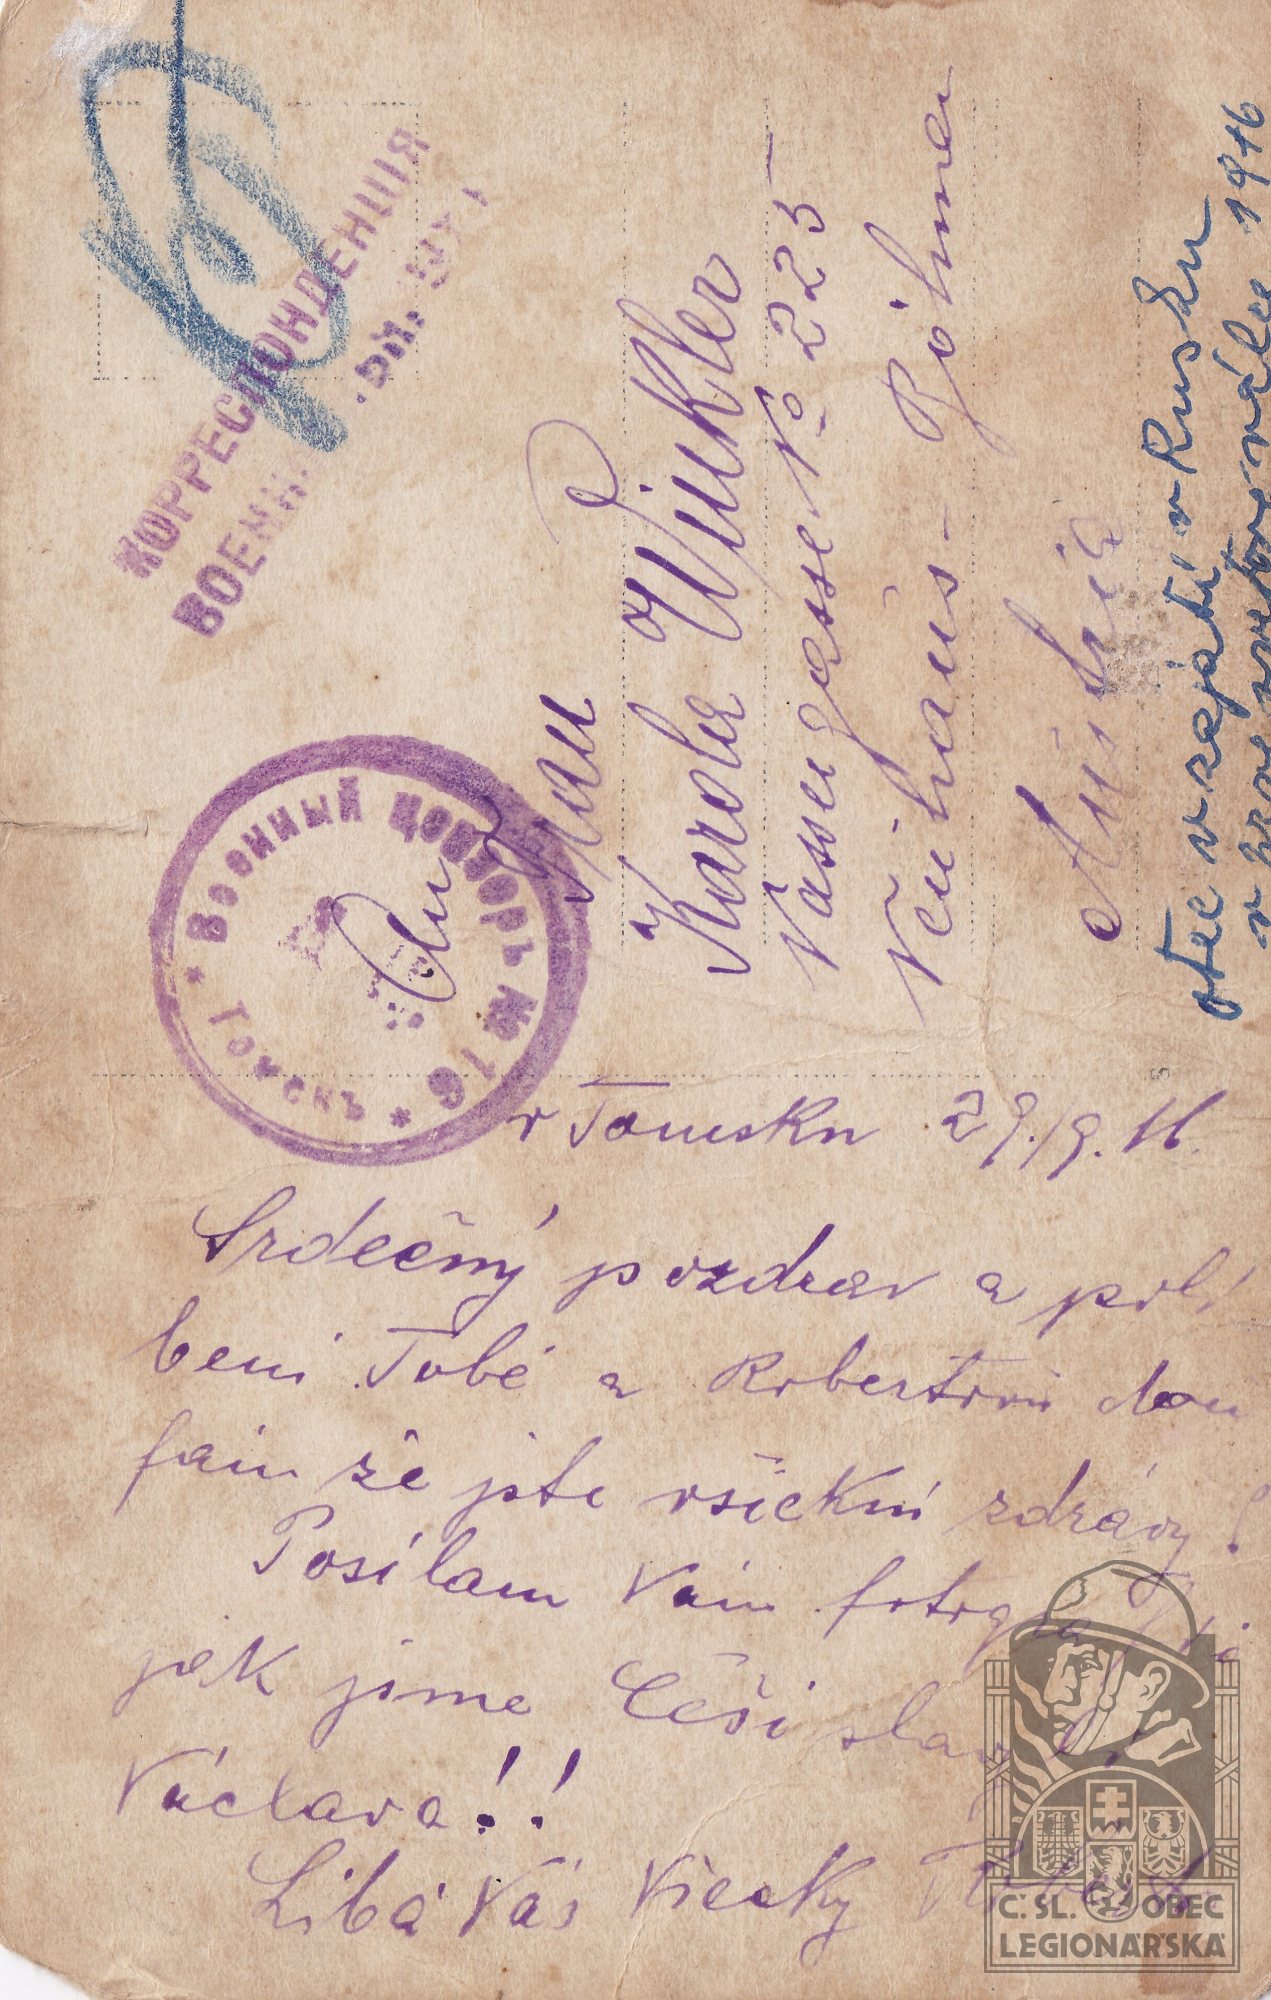 КОРРЕСПОНДЕНЦІЯ
ВОЕННО
* Военный Цензоръ № 16 * Томскъ
Frau
Karola Winkler
Wassergasse No 225
Neuhaus - Böhmen
Austria
otec v zajetí v Rusku
v první světové válce 1916
v Tomsku 29./9. 16.
Srdečný pozdrav a polí
beni Tobě a Robertovi dou
fám že jste všickni zdrávy!
Posílam Vám
jak jsme Češi slavyli
Václava!!
Líbá Vás Všecky
Č. SL. OBEC
LEGIONÁŘSKÁ